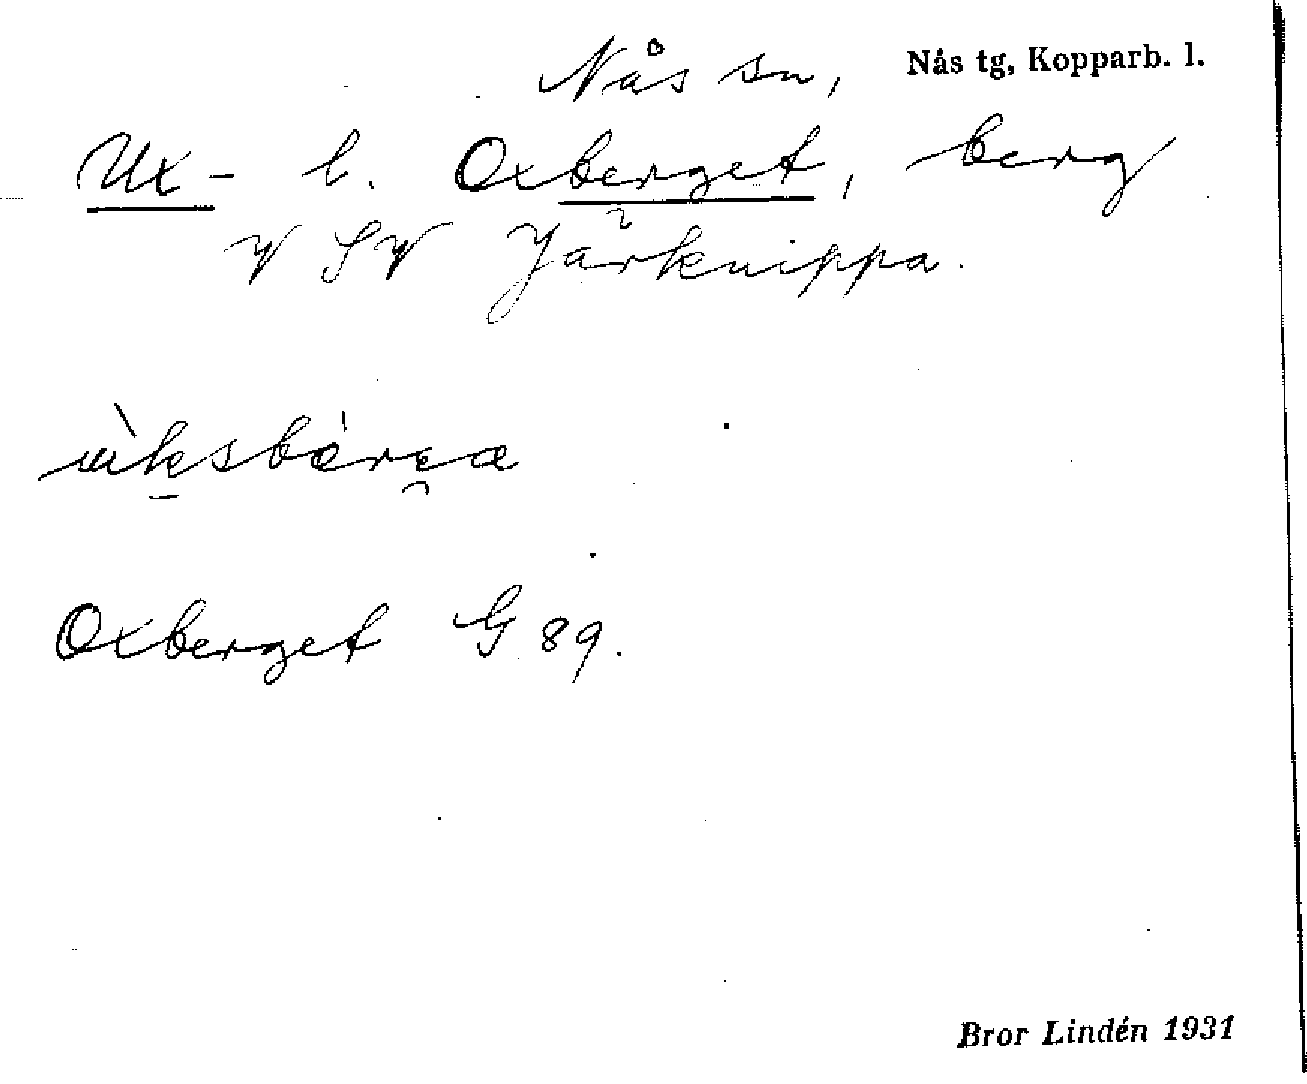 Nås sn, Nås tg, Kopparb. l.
Ux- l. Oxberget, berg
V SV Järknippa.
Oxberget G 89.
Bror Lindén 1931